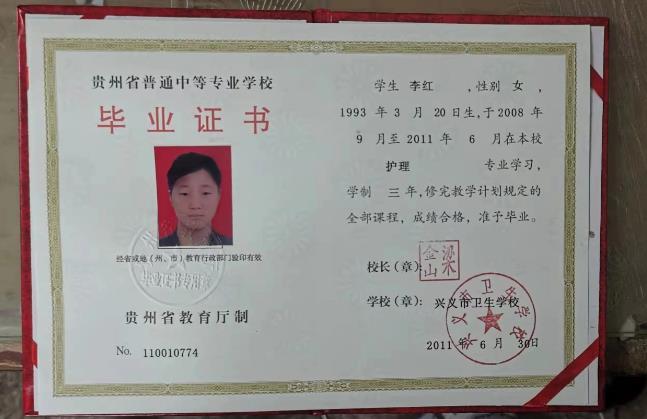 贵州省普通中等专业学校
毕业证书
经省或地（州、市）教育行政部门验印有效
毕业证书专用章
贵州省教育厅制
No. 110010774
学生 李红 ,性别 女 ,
1993 年 3 月 20 日生,于 2008 年
9 月至 2011 年 6 月在本校
护理 专业学习,
学制 三 年,修完教学计划规定的
全部课程，成绩合格，准予毕业。
校长（章）：
金山
学校（章）：兴义市卫生学校
兴义市卫生学校
2011 年 6 月 30日